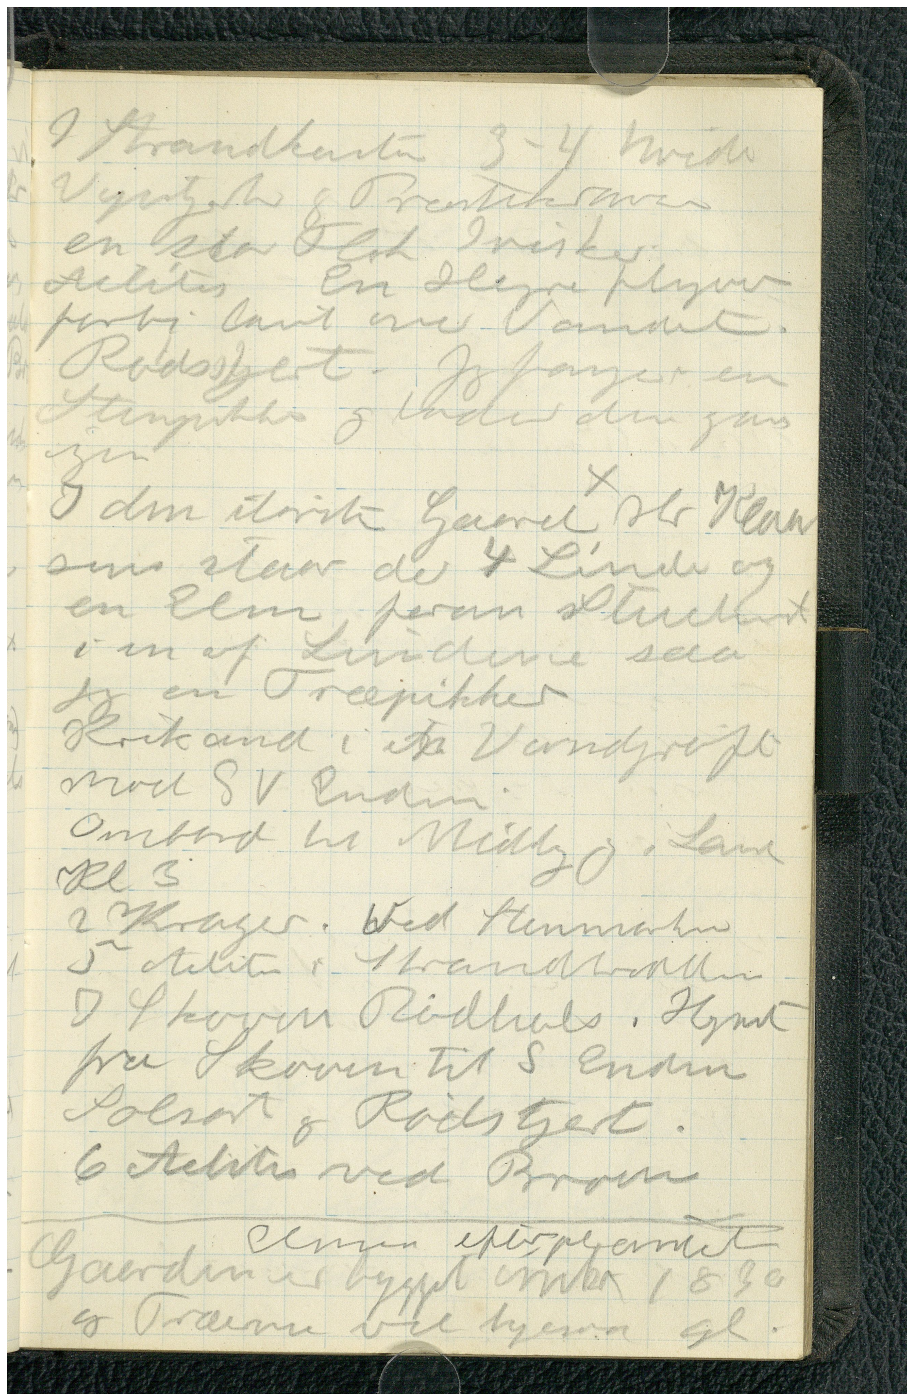 I Strandkanten 3-4 hvide
Vipstjerte & Præstekraver
en stor Flok Irisker.
Actitis En Hejre flyver
forbi lavt over Vandet.
Rødstjert. Jeg fanger en
Stenpikker & lader den gaa
igen
I den største Gaard x Hr Klau
sens staar der 4 Linde og
en Elm foran Stuehuset
i en af Lindene saa
jeg en Træpikker
Krikand i Vandgrøft
mod S V Enden.
Ombord til Middag, i Land
Kl 3
2 Krager. Ved Stenmolen
5 Actitis i Strandbredden
I Skoven Rødhals. Hjemt
fra Skoven til S Enden
Solsort & Rødstjert.
6 Actitis ved Broen
Elmen efterplantet
Gaarden er bygget 1830
og Træerne vel ligesaa gl.